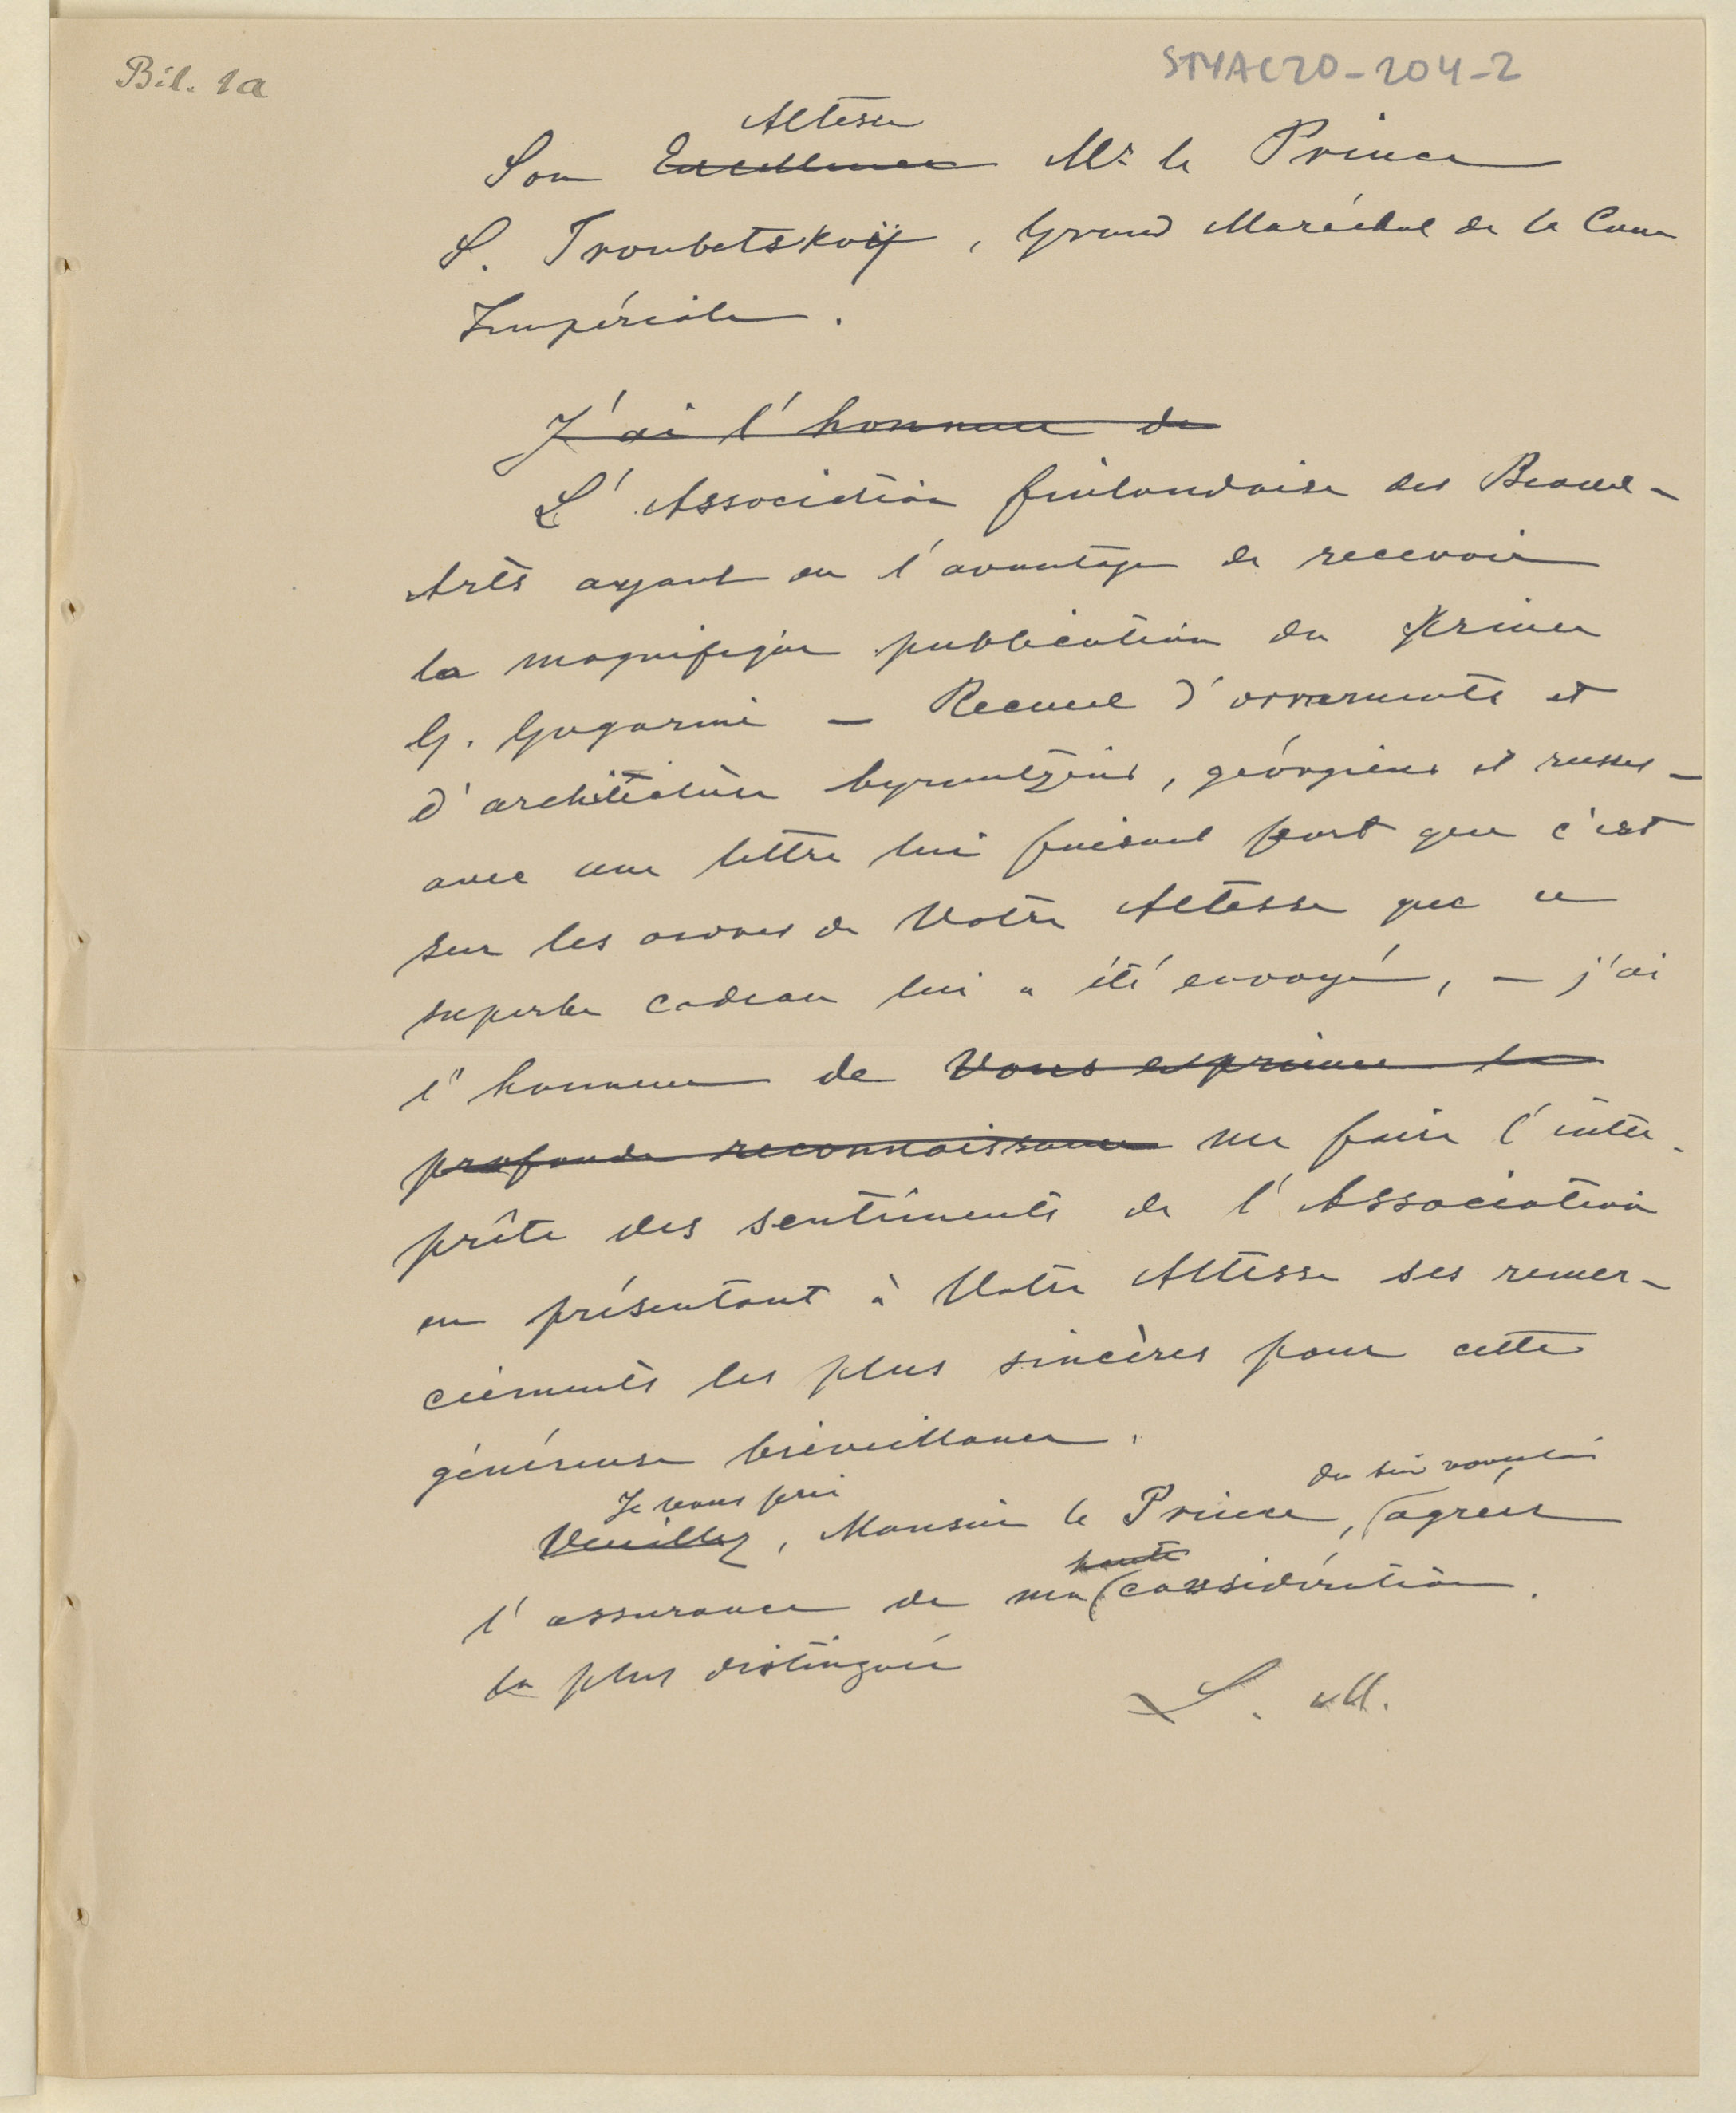 Bil. 1a
STYAC20-204-2
Altesse
Son Excellence Mr le Prince
S. Troubetskoÿ, Grand Maréchal de la Cour
Impériale.
J'ai l'honneur de
L'Association finlandaise des Beaux-
Arts ayant eu l'avantage de recevoir
la magnifique publication du Prince
G. Gagarine — Recueil d'ornements et
d'architecture byzantins, géorgiens et russes —
avec une lettre lui faisant part que c'est
sur les ordres de Votre Altesse que ce
superbe cadeau lui a été envoyé, — j'ai
l'honneur de vous exprimer la
profonde reconnaissance me faire l'inter-
prête des sentiments de l'Association
en présentant à Votre Altesse ses remer-
ciements les plus sincères pour cette
généreuse bienveillance.
Je vous prie
de bien vouloir
Veuillez, Monsieur le Prince, agréer
haute
l'assurance de ma considération.
la plus distinguée
L. M.